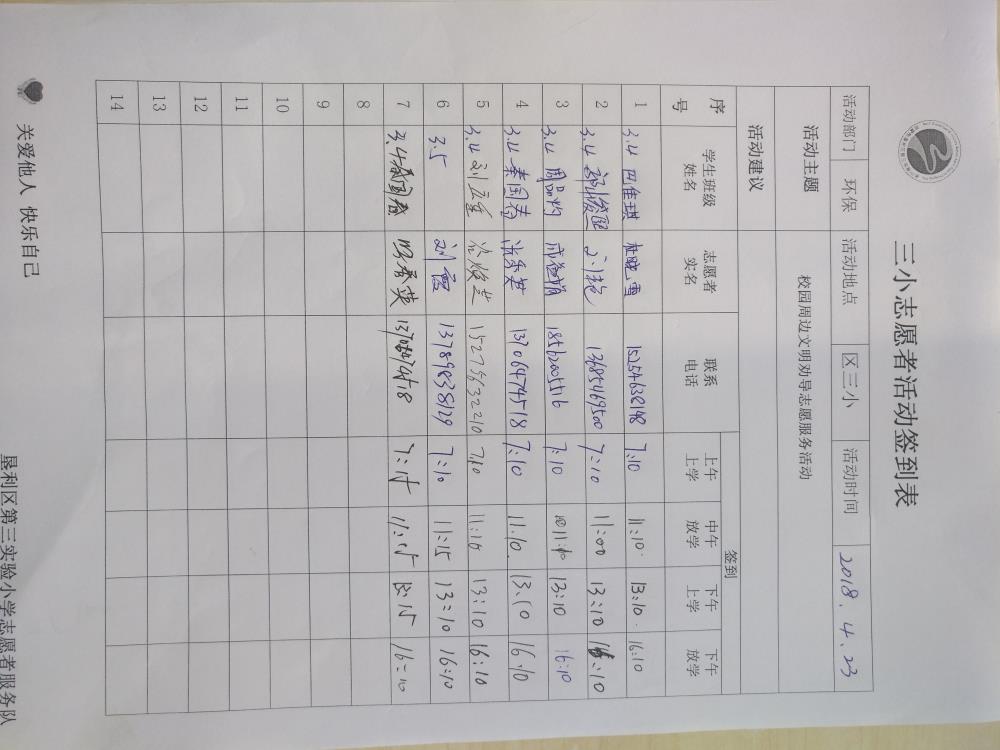 三小志愿者活动签到表
活动部门 环保 活动地点 区三小 活动时间 2018.4.23
活动主题 校园周边文明劝导志愿服务活动
活动建议
序号 学生班级姓名 志愿者实名 联系电话 签到
上午上学 中午放学 下午上学 下午放学
1 3.4 田佳琪 杜晓雪 15254638198 7:10 11:10. 13:10. 16:10
2 3.4 13685469500 7:10 11:00 13:10 16:10
3 3.4 周品灼 18562005516 7:10 11:10 13:10 16:10
4 3.4 秦国春 13706474518 7:10 11.10. 13.10 16.10
5 3.4 刘 15275632210 7.10 11:10 13:10 16:10
6 3.5 刘霞 13789838129 7:10 11:15 13:10 16:10
7 3.4 秦国春 7:15 11:15 13:15 16:10
8
9
10
11
12
13
14
关爱他人 快乐自己
垦利区第三实验小学志愿者服务队